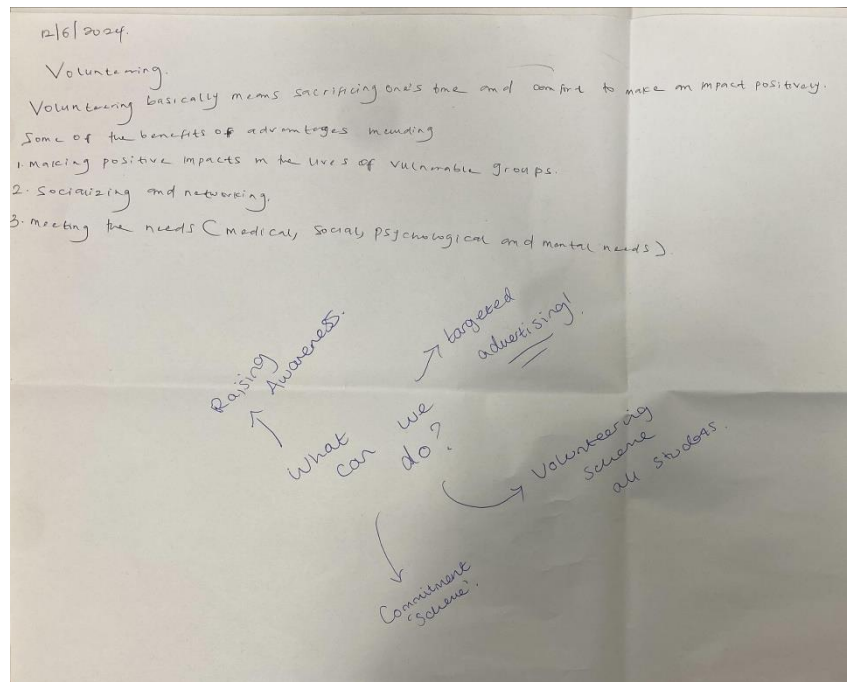 12/6/2024.
Volunteering.
Volunteering basically means sacrificing one's time and comfort to make an impact positively.
Some of the benefits of advantages including
1. Making positive impacts in the lives of vulnerable groups.
2. Socializing and networking.
3. Meeting the needs (medical, social, psychological and mental needs).
Raising
Awareness.
targeted
advertising!
What can we do?
Volunteering
scheme
all students.
Commitment
'Scheme'.